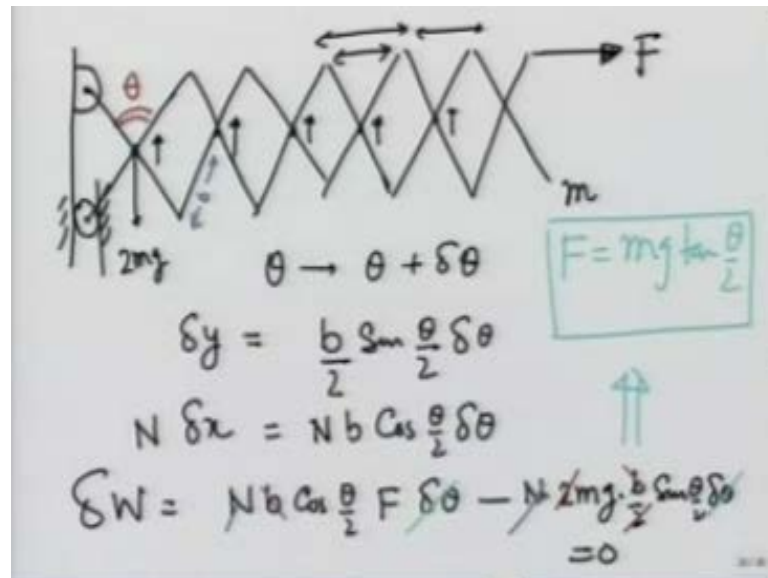 F
θ
b
m
2mg
θ → θ + δθ
F = mg tan θ/2
δy = b/2 Sin θ/2 δθ
N δx = N b Cos θ/2 δθ
δW = N b Cos θ/2 F δθ - N 2mg · b/2 Sin θ/2 δθ
= 0